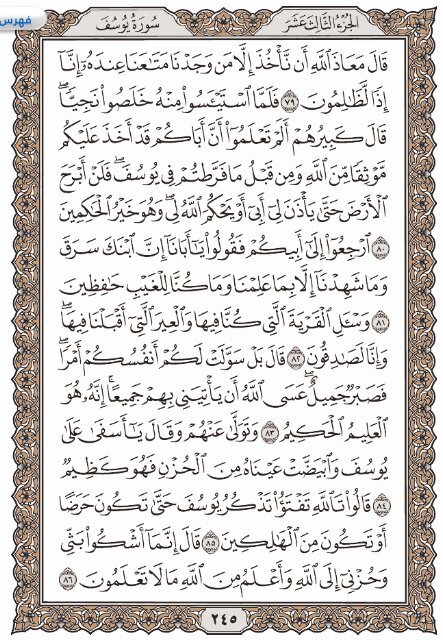 فهرس
سُورَةُ يُوسُفَ
الجُزْءُ الثَّالِثَ عَشَرَ
قَالَ مَعَاذَ ٱللَّهِ أَن نَّأْخُذَ إِلَّا مَن وَجَدْنَا مَتَٰعَنَا عِندَهُۥٓ إِنَّآ
إِذًا لَّظَٰلِمُونَ ٧٩ فَلَمَّا ٱسْتَيْـَٔسُوا۟ مِنْهُ خَلَصُوا۟ نَجِيًّا ۖ
قَالَ كَبِيرُهُمْ أَلَمْ تَعْلَمُوٓا۟ أَنَّ أَبَاكُمْ قَدْ أَخَذَ عَلَيْكُم
مَّوْثِقًا مِّنَ ٱللَّهِ وَمِن قَبْلُ مَا فَرَّطتُمْ فِى يُوسُفَ ۖ فَلَنْ أَبْرَحَ
ٱلْأَرْضَ حَتَّىٰ يَأْذَنَ لِىٓ أَبِىٓ أَوْ يَحْكُمَ ٱللَّهُ لِى ۖ وَهُوَ خَيْرُ ٱلْحَٰكِمِينَ
٨٠ ٱرْجِعُوٓا۟ إِلَىٰٓ أَبِيكُمْ فَقُولُوا۟ يَٰٓأَبَانَآ إِنَّ ٱبْنَكَ سَرَقَ
وَمَا شَهِدْنَآ إِلَّا بِمَا عَلِمْنَا وَمَا كُنَّا لِلْغَيْبِ حَٰفِظِينَ
٨١ وَسْـَٔلِ ٱلْقَرْيَةَ ٱلَّتِى كُنَّا فِيهَا وَٱلْعِيرَ ٱلَّتِىٓ أَقْبَلْنَا فِيهَا ۖ
وَإِنَّا لَصَٰدِقُونَ ٨٢ قَالَ بَلْ سَوَّلَتْ لَكُمْ أَنفُسُكُمْ أَمْرًا ۖ
فَصَبْرٌ جَمِيلٌ ۖ عَسَى ٱللَّهُ أَن يَأْتِيَنِى بِهِمْ جَمِيعًا ۚ إِنَّهُۥ هُوَ
ٱلْعَلِيمُ ٱلْحَكِيمُ ٨٣ وَتَوَلَّىٰ عَنْهُمْ وَقَالَ يَٰٓأَسَفَىٰ عَلَىٰ
يُوسُفَ وَٱبْيَضَّتْ عَيْنَاهُ مِنَ ٱلْحُزْنِ فَهُوَ كَظِيمٌ
٨٤ قَالُوا۟ تَٱللَّهِ تَفْتَؤُا۟ تَذْكُرُ يُوسُفَ حَتَّىٰ تَكُونَ حَرَضًا
أَوْ تَكُونَ مِنَ ٱلْهَٰلِكِينَ ٨٥ قَالَ إِنَّمَآ أَشْكُوا۟ بَثِّى
وَحُزْنِىٓ إِلَى ٱللَّهِ وَأَعْلَمُ مِنَ ٱللَّهِ مَا لَا تَعْلَمُونَ ٨٦
٢٤٥